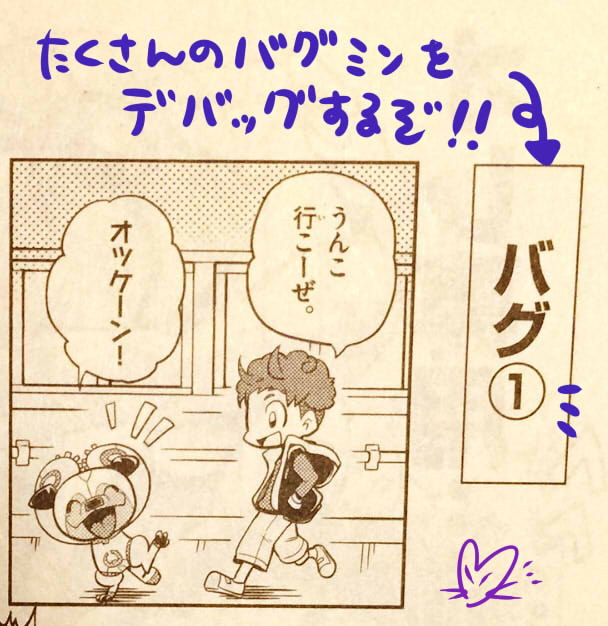 たくさんのバグミンを
デバッグするぞ!!
バグ①
うんこ
行こーぜ。
オッケーン!